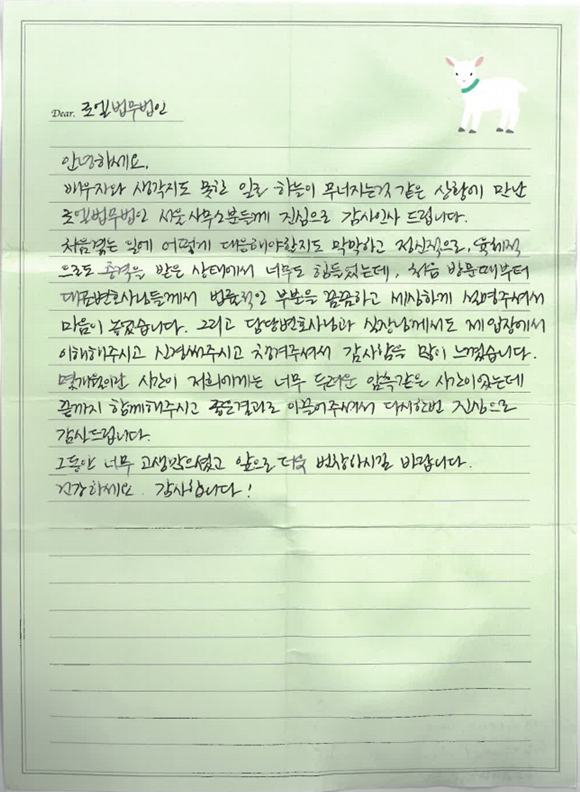 Dear. 로엘법무법인
안녕하세요.
배우자와 생각지도 못한 일로 하늘이 무너지는것 같은 상황에 만난
로엘법무법인 서울사무소분들께 진심으로 감사인사 드립니다.
처음겪는 일에 어떻게 대응해야할지도 막막하고 정신적으로, 육체적
으로도 충격을 받은 상태에서 너무도 힘들었는데, 처음 방문때부터
대표변호사님들께서 법률적인 부분을 꼼꼼하고 세심하게 설명주셔서
마음이 놓였습니다. 그리고 담당변호사님과 실장님께서도 제입장에서
이해해주시고 신경써주시고 챙겨주셔서 감사함을 많이 느꼈습니다.
몇개월이란 시간이 저희에게는 너무 두려운 암흑같은 시간이었는데
끝까지 함께해주시고 좋은결과로 이끌어주셔서 다시한번 진심으로
감사드립니다.
그동안 너무 고생많으셨고 앞으로 더욱 번창하시길 바랍니다.
건강하세요. 감사합니다!